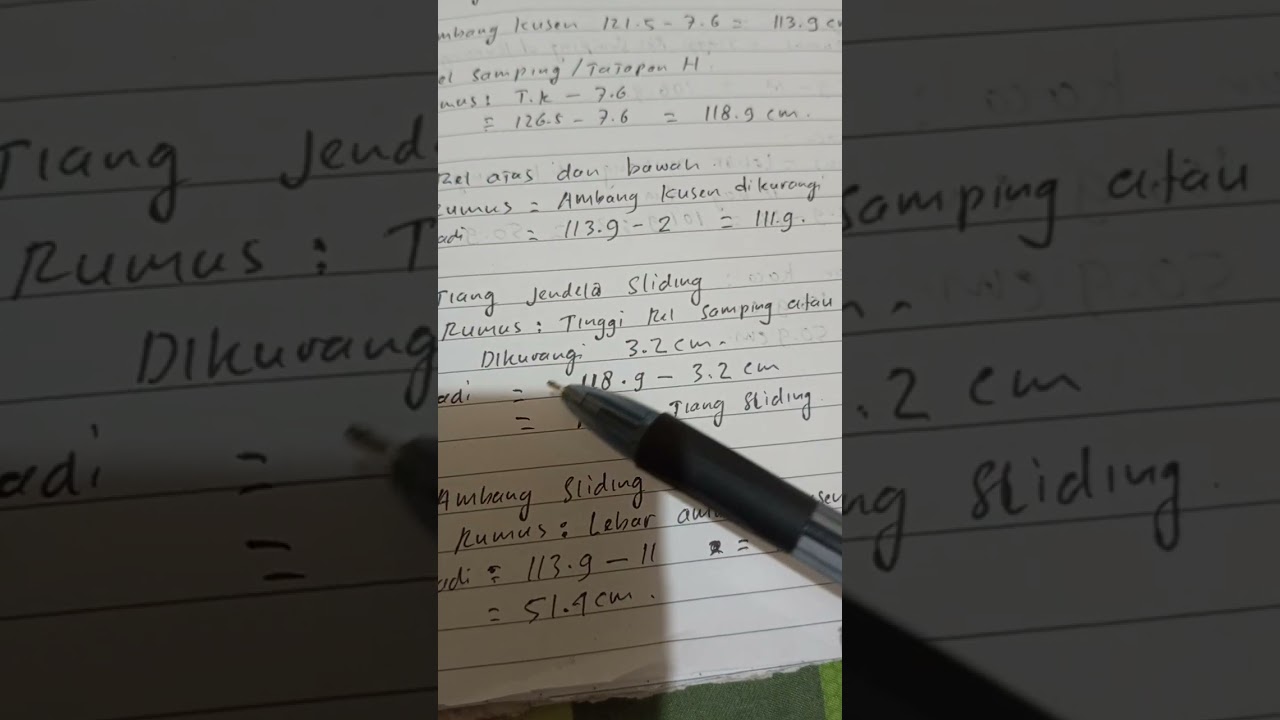 mbang kusen 121.5 - 7.6 = 113.9 cm
el samping / Tatapan H
mus: T.K - 7.6
= 126.5 - 7.6 = 118.9 cm.
Rel atas dan bawah
Rumus = Ambang kusen dikurangi
adi = 113.9 - 2 = 111.9.
Tiang Jendela Sliding
Rumus: Tinggi Rel samping atau
Dikurangi 3.2 cm.
adi = 118.9 - 3.2 cm
= Tiang Sliding
Ambang Sliding
Rumus: Lebar
adi = 113.9 - 11 =
= 51.4 cm.